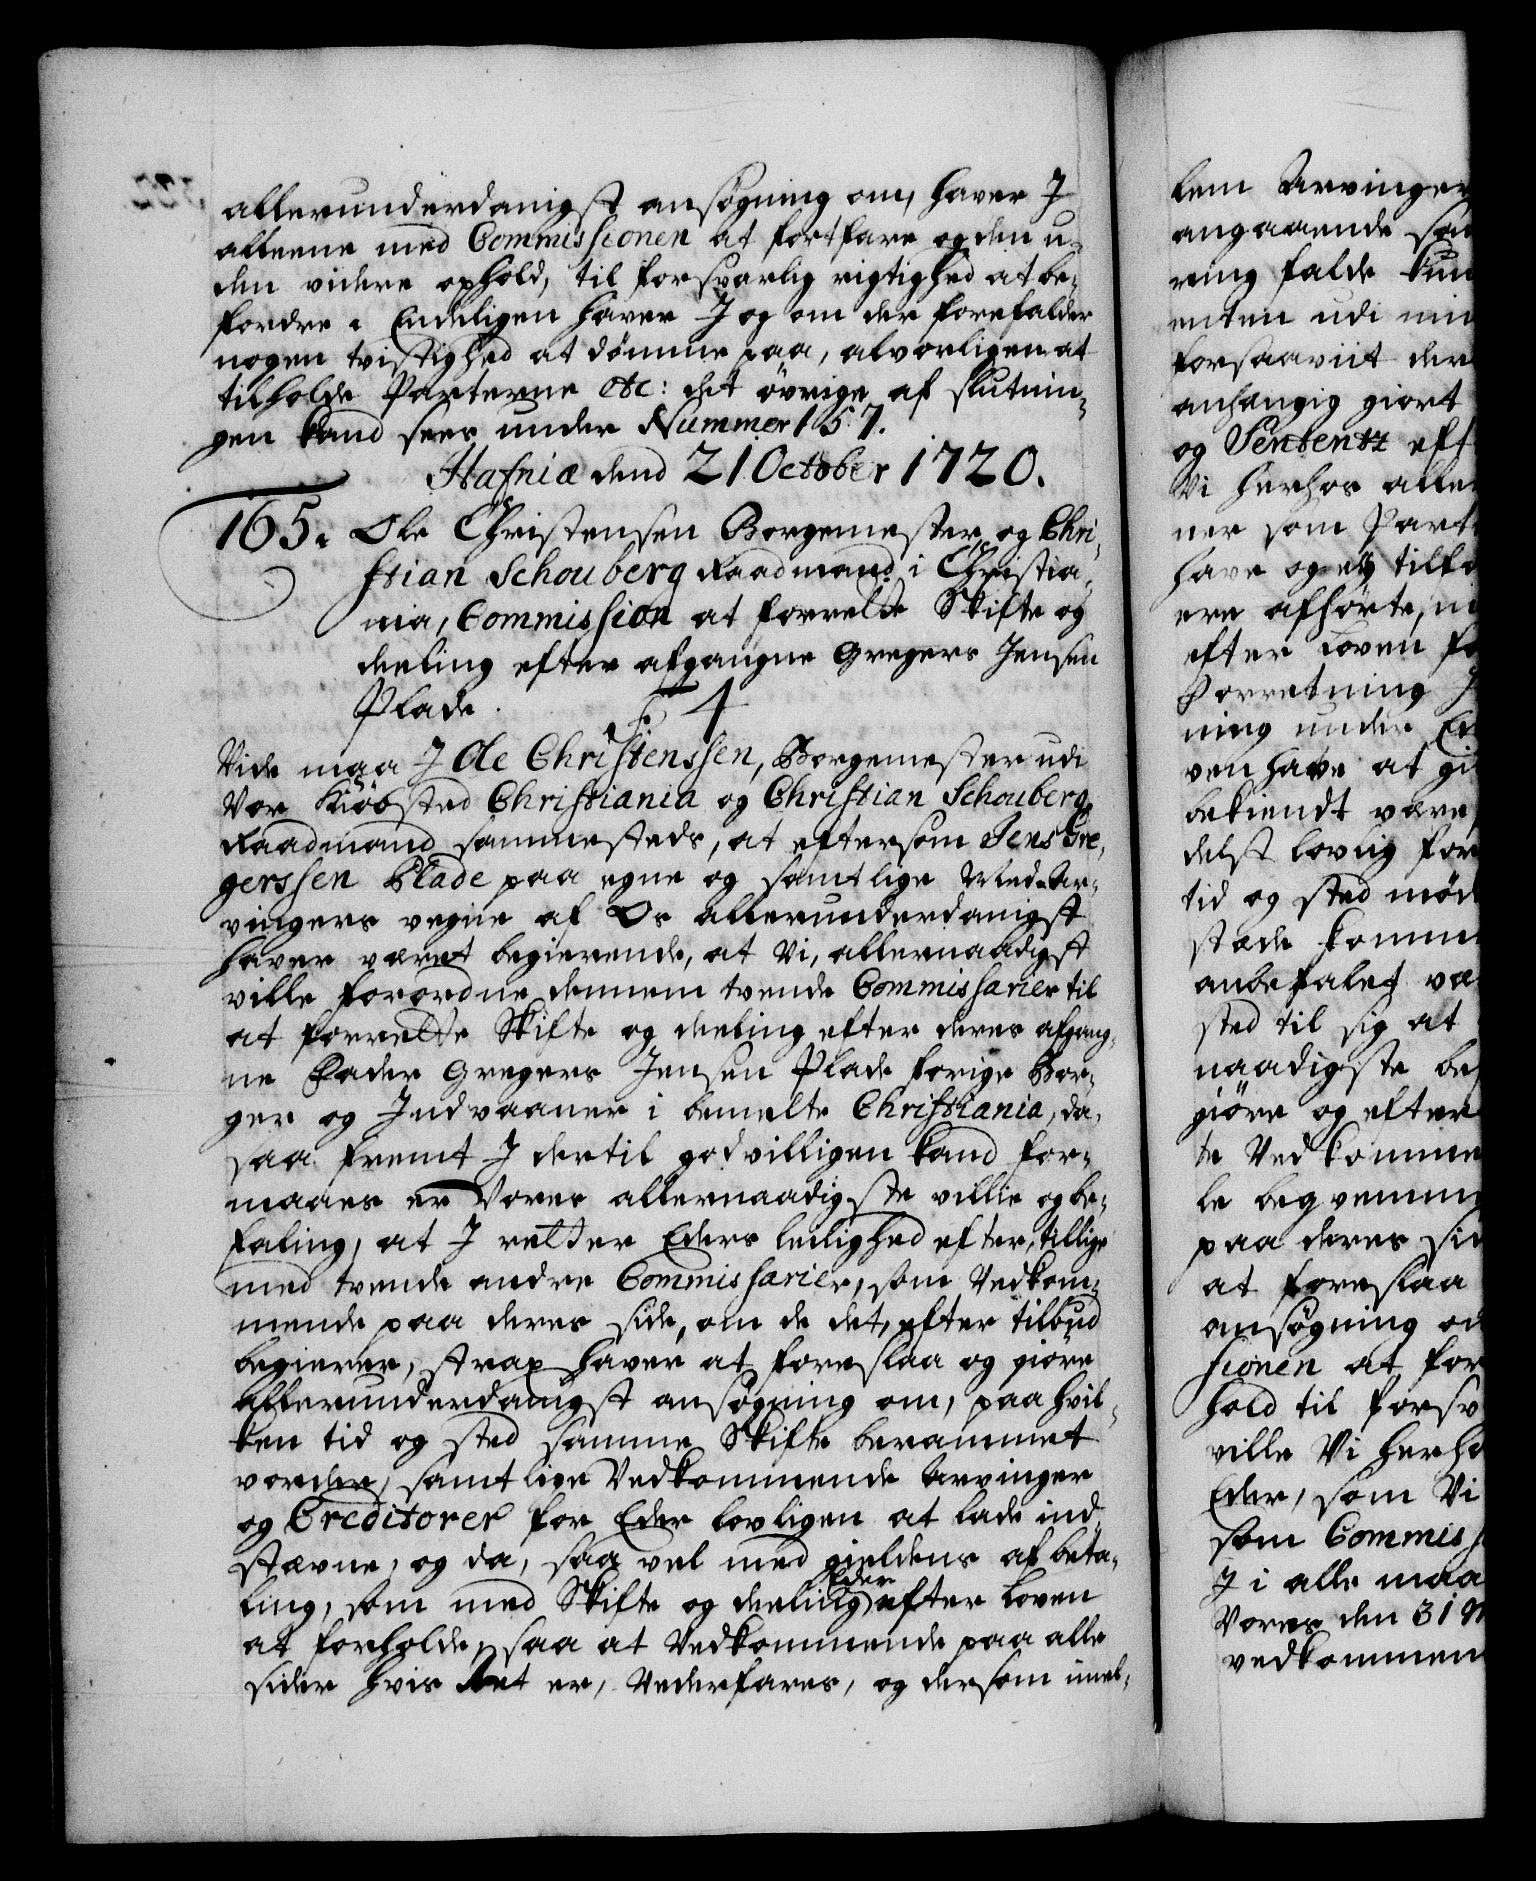 allerunderdanigst ansøgning om, haver I
alleene med Commissionen at fortfare og den u-
den videre ophold, til forsvarlig rigtighed at be-
fordre. Endeligen haver I og om der forefalder
nogen tvistighed at dømme paa, alvorligen at
tilholde Parterne etc: det øvrige af slutnin-
gen kand sees under Nummer 157.
Hafniæ dend 21 October 1720.
165. Ole Christensen Borgemester og Chri-
stian Schouberg Raadmand i Christia-
nia, Commission at forrette Skifte og
deeling efter afgangne Gregers Jensen
Plade.
Vide maa I Ole Christenssen, Borgemester udi
Vor Kiøbsted Christiania og Christian Schouberg
Raadmand sammesteds, at eftersom Jens Gre-
gerssen Plade paa egne og samtlige Med-Ar-
vingers vegne af Os allerunderdanigst
haver været begierende, at Vi, allernaadigst
ville forordne dennem tvende Commissarier til
at forrette Skifte og deeling efter deres afgang-
ne Fader Gregers Jensen Plade forige Bor-
ger og Indvaaner i bemelte Christiania, da,
saa fremt I dertil godvilligen kand for-
maaes er Vores allernaadigste villie og be-
faling, at I retter Eders leilighed efter, tillige
med tvende andre Commissarier, som Vedkom-
mende paa deres side, om de det, efter tilbud
begierer, strax haver at foreslaa og giøre
allerunderdanigst ansøgning om, paa hvil-
ken tid og sted samme Skifte berammet
vorder, samtlige Vedkommende Arvinger
og Creditorer for Eder lovligen at lade ind-
stævne, og da, saa vel med gieldens afbeta-
Eder
ling, som med Skifte og deeling efter Loven
at forholde, saa at Vedkommende paa alle
sider hvis Ret er, Vederfares, og dersom imel-
lem Arvinger
angaaende
ring falde
enten udi
forsaavit der
anhængig giort
og Sententz
Vi herhos
ner som
have og ey
ere afhørte,
efter Loven
Forretning
ning under
ven have at
bekiendt være,
delst lovlig
tid og sted
stæde
anbefalet
sted til sig at
naadigste
giøre og efter
te
le
paa deres
at foreslaa
ansøgning
sionen at
hold til
ville Vi
Eder, som Vi
som
I i alle
Vores den 31
vedkommen